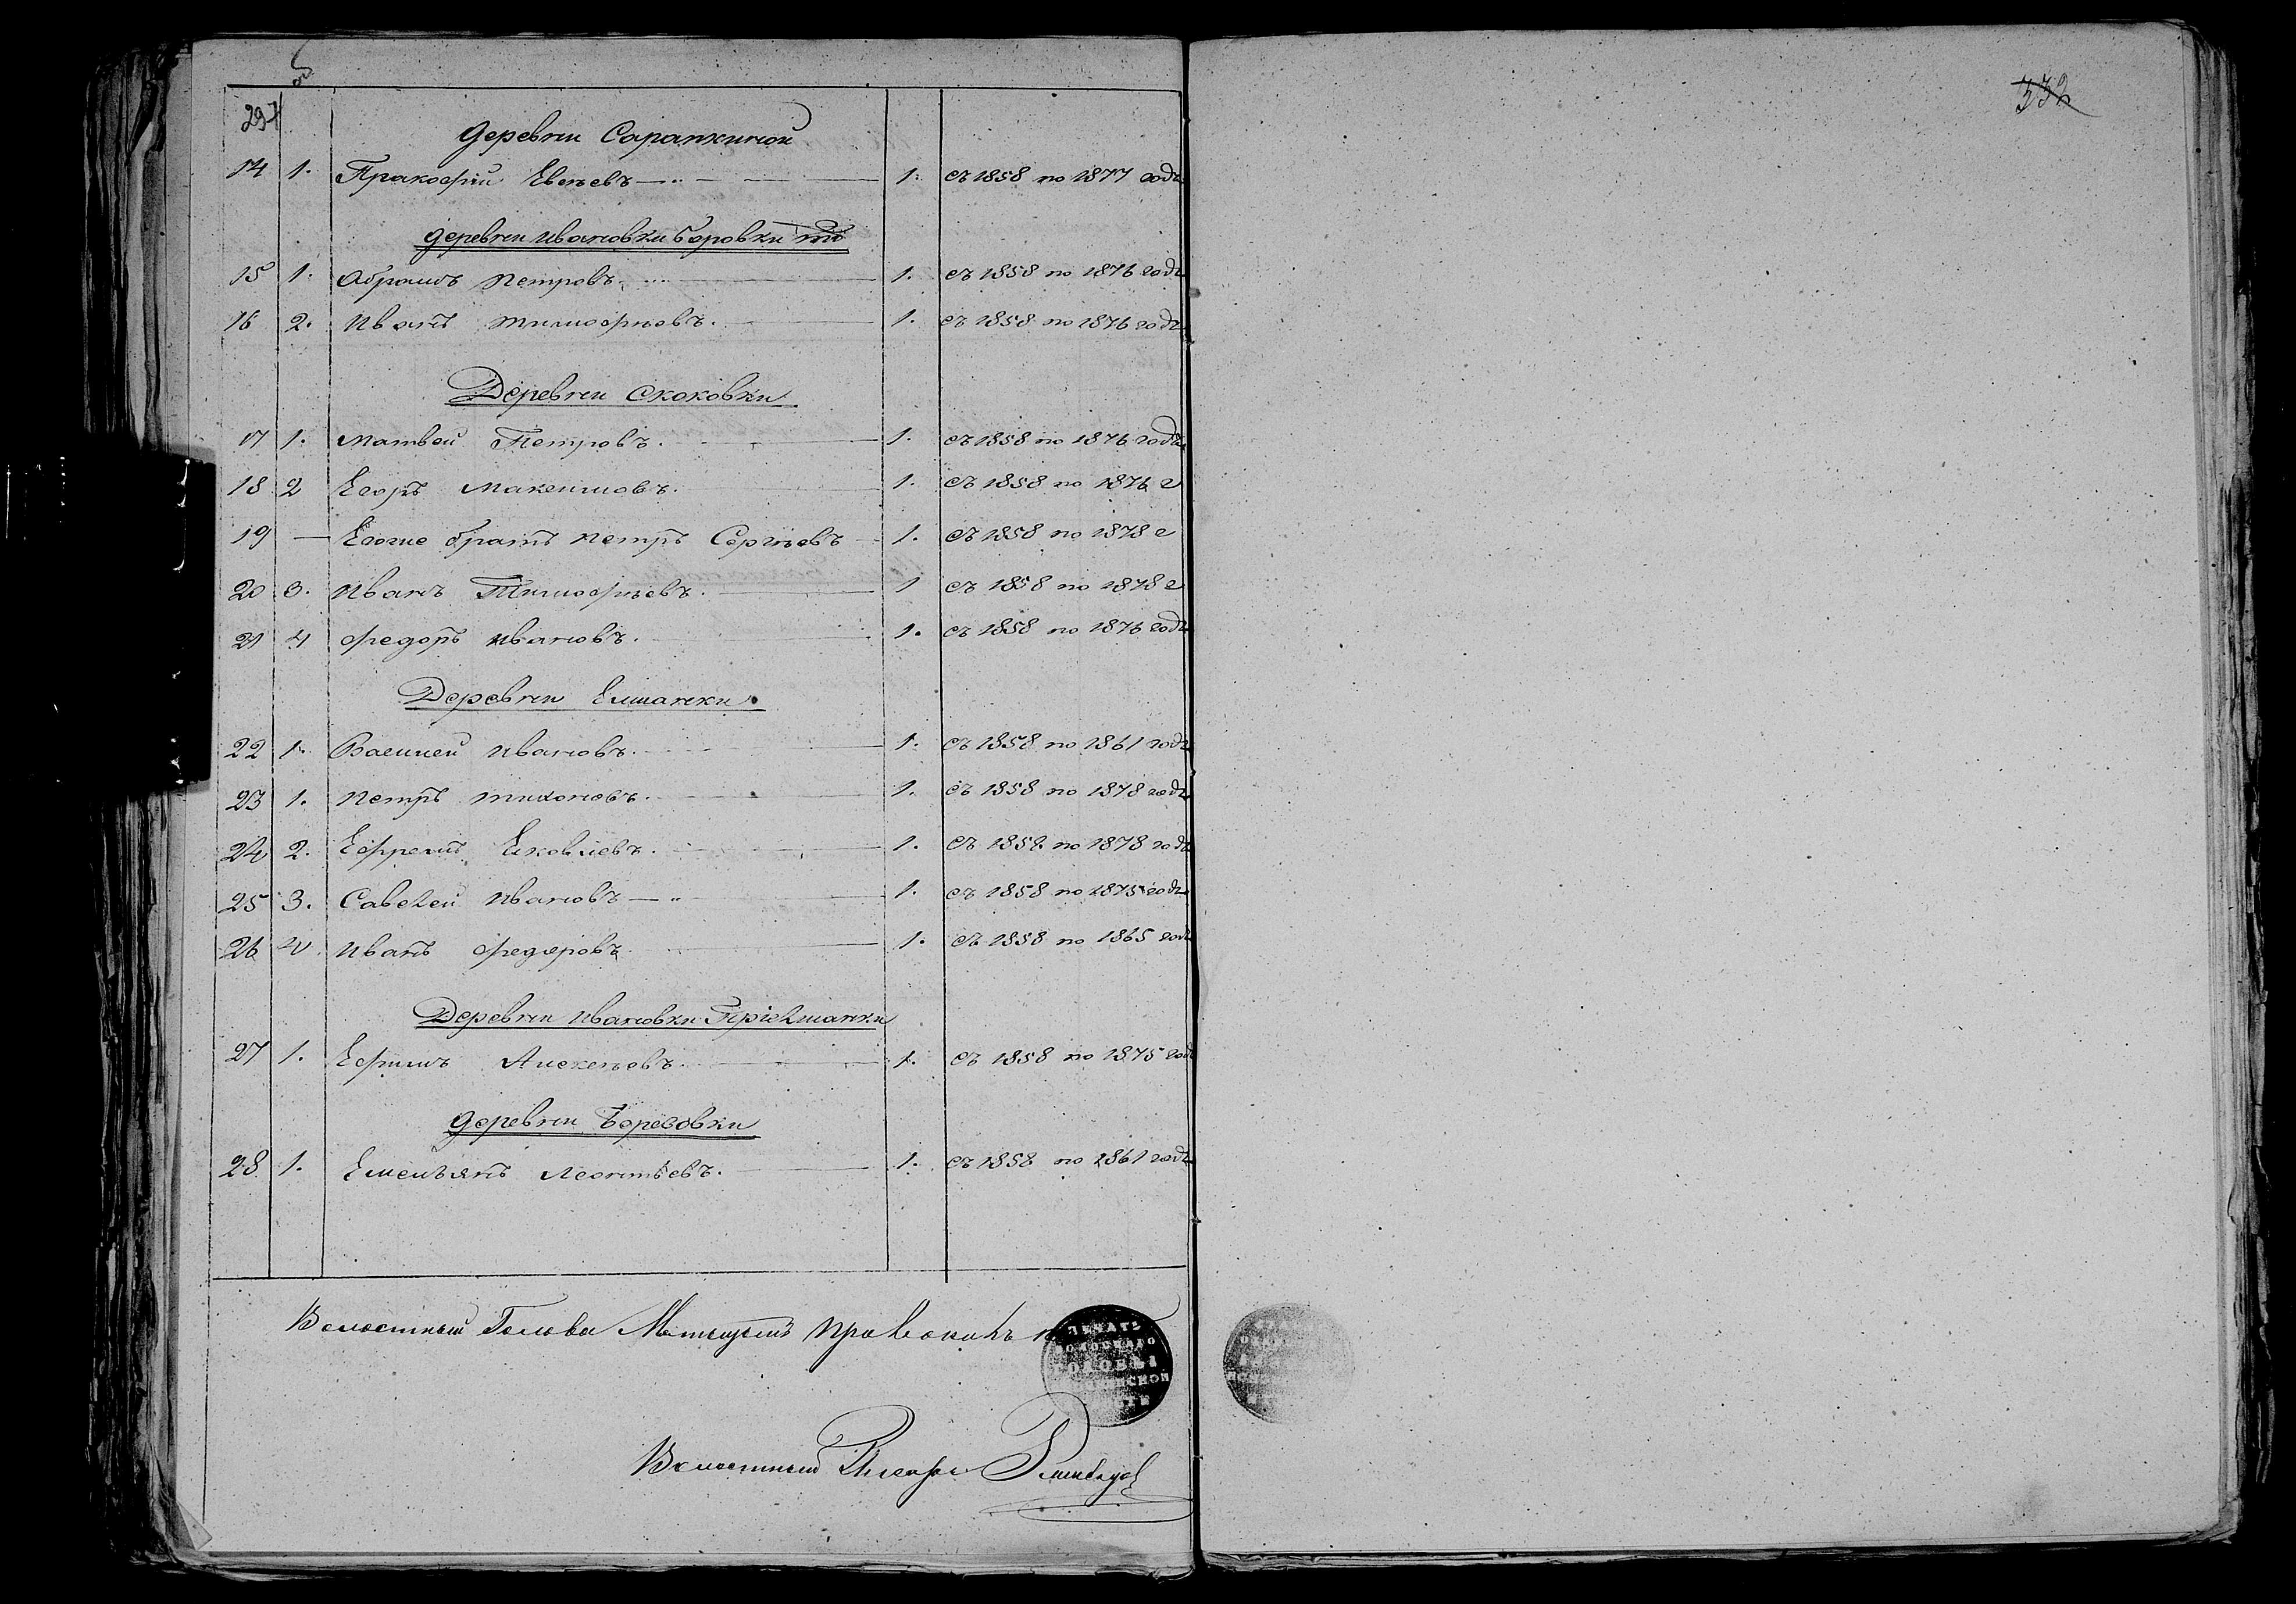 332
297
деревни Сарапкиной
14 1. Пракофiй Евсѣевъ 1. съ 1858 по 1877 годъ
деревни Ивановки Боровки тъ
15 1. Абрамъ Петровъ. 1. съ 1858 по 1876 годъ
16 2. Иванъ Тимофѣовъ. 1. съ 1858 по 1876 годъ
Деревни Скоковки
17 1. Матвей Петровъ. 1. съ 1858 по 1876 годъ
18 2 Егоръ Максимовъ. 1. съ 1858 по 1876 г
19 — Егоже братъ Петръ Сергѣевъ 1. съ 1858 по 1878 г
20 3. Иванъ Тимофѣевъ. 1 съ 1858 по 1878 г
21 4 Федоръ Ивановъ. 1. съ 1858 по 1876 годъ
Деревни Елшанки
22 1. Василей Ивановъ. 1. съ 1858 по 1861 годъ
23 1. Петръ Тихоновъ. 1. съ 1858 по 1878 годъ
24 2. Ефремъ Яковлевъ. 1. съ 1858 по 1878 годъ
25 3. Савелей Ивановъ 1. съ 1858 по 1875 годъ
26 4. Иванъ Федоровъ 1. съ 1858 по 1865 годъ
Деревни Ивановки Прiелшанки
27 1. Ефимъ Алексѣевъ. 1. съ 1858 по 1875 годъ
деревни Березовки
28. 1. Емельянъ Леонтьевъ. 1. съ 1858 по 1861 годъ
Волостный Голова
ПЕЧАТЬ
ГОЛОВЫ
Волостный Писарь